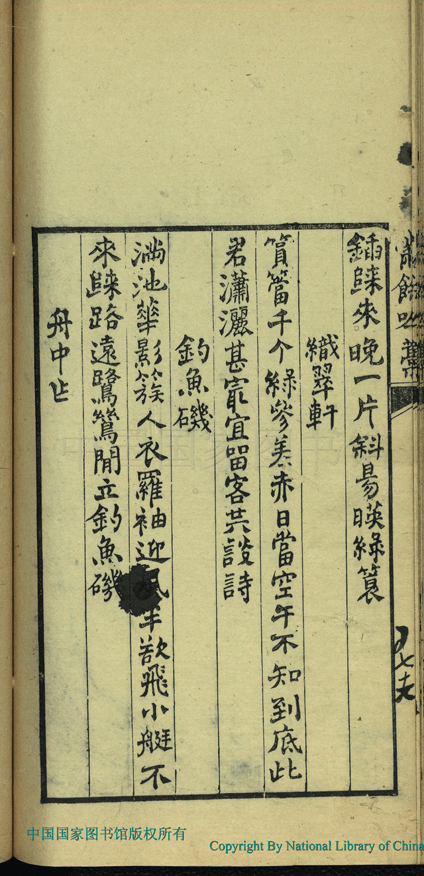 鍤歸來晚一片斜昜暎綠簑
織翠軒
篔簹千个綠參差赤日當空午不知到底此
君瀟灑甚㝡宜畱客共談詩
釣魚磯
滿池華影簇人衣羅袖迎風半欲飛小艇不
來歸路遠鷺鷥閒立釣魚磯
舟中作
中国国家图书馆版权所有
Copyright By National Library of China